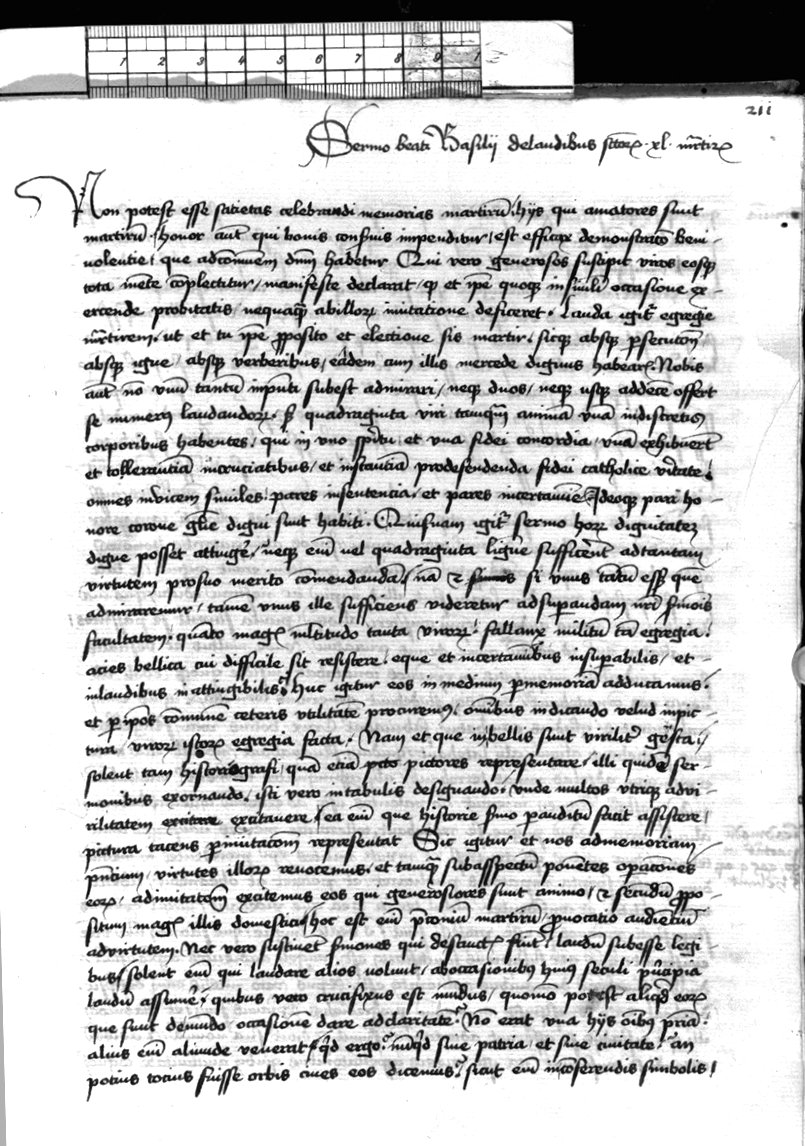 211
Sermo beati Basilii de laudibus sctorꝝ · xl · mrtirꝝ
Non potest esse satietas celebrandi memorias martirū / hijs qui amatores sunt
martirū / honor aut̄ qui bonis conseruis impenditur / est efficax demonstratō beni-
uolentie / que ad cōmunem dnm̄ habetur Qui vero generosos suscipit viros eosqꝫ
tota mēte cōplectitur / manifeste declarat / qꝫ et ip̄e quoqꝫ in simili occasione ex-
ercende probitatis / nequaqꝫ ab illorꝝ imitatione deficeret · Lauda igit̄ egregie
mr̄tirem / ut et tu ip̄e ꝓposito et electione sis martir / sicqꝫ absqꝫ ꝑsecutōne
absqꝫ igne / absqꝫ verberibus / eādem cum illis mercede dignus habearꝫ · Nobis
aut̄ nō vnū tantū inp̄nti subest admirari / neqꝫ duos / neqꝫ usqꝫ ad decē offert
se numerꝰ laudandorꝝ · sꝫ quadraginta viri tamqꝫ animā vnā in discretis
corporibus habentes / qui in vno sp̄ritu / et vna fidei concordia / vnā exhibuert̄
et tollerantiā in cruciatibus / et instantiā pro defendenda fidei catholice v̄itate /
omnes inuicem similes / pares in sentencia / et pares in certamīe / Ideoqꝫ pari ho-
nore corone gl̄ie digni sunt habiti · Quisnam igit̄ sermo horꝝ dignitateꝫ
digne posset attingē / neqꝫ eni̅ uel quadraginta ligue sufficerēt ad tantam
virtutem pro suo merito cōmendandā / nā ⁊ si vnus tātū eēt quē
admiraremur / tamē vnus ille sufficiens videretur ad suꝑandam nr̄i s̄mōis
facultatem / quāto magꝭ m̄ltitudo tanta virorꝝ / fallanx militū tā egregia /
acies bellica cui difficile sit resistere / eque et in certaminibus insuꝑabilis / et
in laudibus in attingibilis / Huc igitur eos in medium ꝑ memoriā adducamus /
et ꝑ ip̄os cōmunē ceteris vtilitatē procuremꝰ / omībus indicando velud in pic-
tura virorꝝ istorꝝ egregia facta / Nam et que in bellis sunt virilitꝭ gesta /
solent tam historiografi / quā etiā pictores representare / illi quidē ser-
monibus exornando / isti vero in tabulis designando / vnde multos vtriqꝫ ad vi-
rilitatem excitauere / ea eni̅ que historie s̄mo ꝑ auditū facit assistere /
pictura tacens ꝑ imitatōem representat Sic igitur et nos ad memoriam
p̄ntium / virtutes illorꝝ reuocemus / et tamqꝫ sub asspectū ponētes oꝑacōnes
eorꝝ / ad imitatōem excitemus eos qui generosiores sunt animo / ⁊ secūdū ꝓpo-
situm magꝭ illis domestici / hoc est eni̅ p̄coniū martirū / ꝓuocatio audientiū
ad virtutem / Nec vero sustinet s̄mones qui de sanctꝭ fiūt / laudū subesse legi-
bus / solent eni̅ qui laudare alios uolunt / ab occasionibꝰ huiꝰ seculi p̄ncipia
laudū assumē / quibus vero crucifixus est mūdus / quomō potest aliqd̄ eorꝝ
que sunt de mūdo / occasionē dare ad claritatē / Nō erat vna hijs oībꝰ pr̄ia /
alius eni̅ aliunde venerat / qd̄ ergo / nūqd̄ sine patria / et sine ciuitate / an
potius tocius fuisse orbis ciues eos dicemus / sicut eni̅ in cōferendis simbolis /